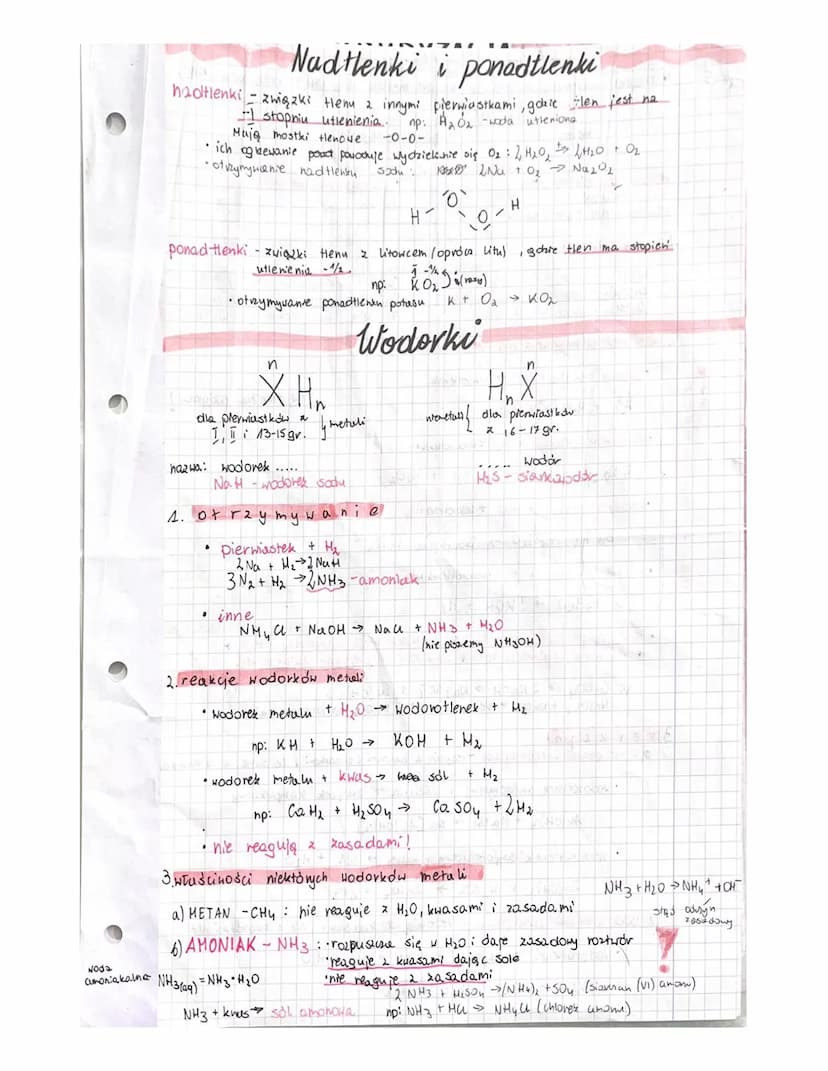 Nadtlenki i ponadtlenki
nadtlenki - związki tlenu z innymi pierwiastkami, gdzie tlen jest na
-I stopniu utlenienia. np: H2O2 - woda utleniona
Mają mostki tlenowe -O-O-
• ich ogrzewanie powoduje wydzielenie się O2 : 2H2O2 → 2H2O + O2
• otrzymywanie nadtlenku sodu: 2Na + O2 → Na2O2
H - O O - H
ponadtlenki - związki tlenu z litowcem (oprócz litu), gdzie tlen ma stopień
utlenienia -1/2
I -1/2
np: KO2 (razy)
• otrzymywanie ponadtlenku potasu K + O2 → KO2
Wodorki
n n
XHn HnX
dla pierwiastków z } metali niemetali { dla pierwiastków
I, II i 13-15 gr. z 16-17 gr.
nazwa: wodorek ..... ..... wodór
NaH - wodorek sodu H2S - siarkowodór
1. otrzymywanie
• pierwiastek + H2
2Na + H2 → 2NaH
3N2 + H2 → 2NH3 - amoniak
• inne
NH4Cl + NaOH → NaCl + NH3 + H2O
(nie piszemy NH3OH)
2. reakcje wodorków metali
• wodorek metalu + H2O → wodorotlenek + H2
np: KH + H2O → KOH + H2
• wodorek metalu + kwas → sól + H2
np: CaH2 + H2SO4 → CaSO4 + 2H2
• nie reagują z zasadami!
3. właściności niektórych wodorków metali
NH3 + H2O → NH4+ + OH-
stąd odczyn
zasadowy
a) METAN - CH4 : nie reaguje z H2O, kwasami i zasadami
b) AMONIAK - NH3 : • rozpuszcza się w H2O i daje zasadowy roztwór
• reaguje z kwasami dając sole
• nie reaguje z zasadami
?
woda
amoniakalna NH3(aq) = NH3 • H2O
2 NH3 + H2SO4 → (NH4)2 + SO4 (siarczan (VI) amonu)
NH3 + kwas → sól amonowa
np: NH3 + HCl → NH4Cl (chlorek amonu)